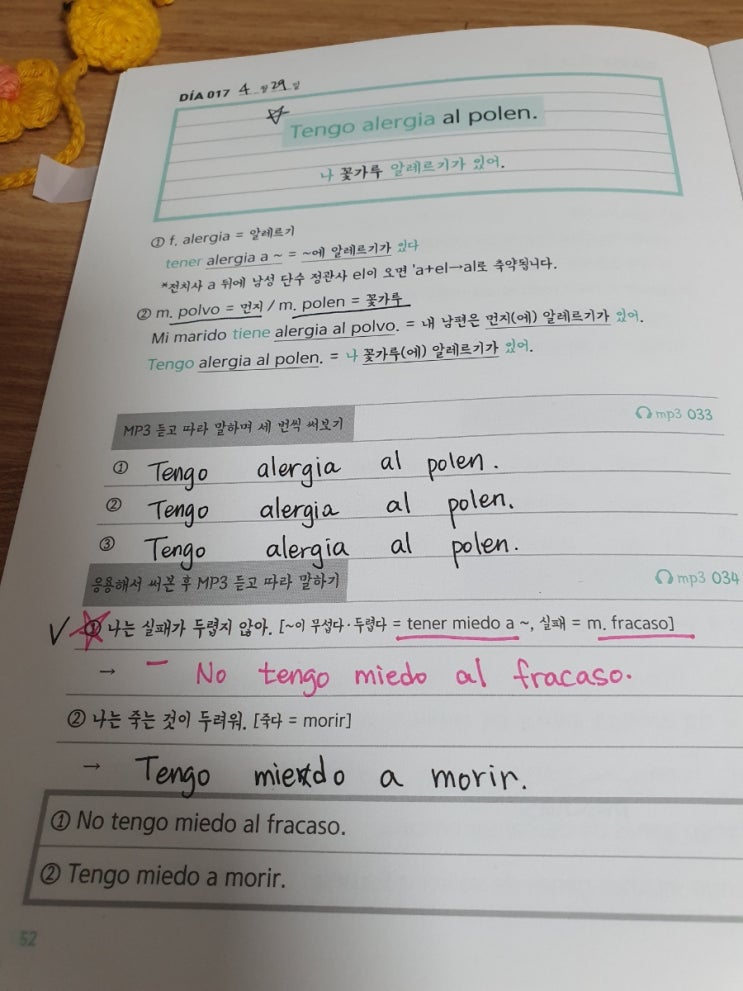 DÍA 017 4월 29일
Tengo alergia al polen.
나 꽃가루 알레르기가 있어.
① f. alergia = 알레르기
tener alergia a ~ = ~에 알레르기가 있다
*전치사 a 뒤에 남성 단수 정관사 el이 오면 'a+el→al로 축약됩니다.
② m. polvo = 먼지 / m. polen = 꽃가루
Mi marido tiene alergia al polvo. = 내 남편은 먼지(에) 알레르기가 있어.
Tengo alergia al polen. = 나 꽃가루(에) 알레르기가 있어.
MP3 듣고 따라 말하며 세 번씩 써보기 mp3 033
① Tengo alergia al polen.
② Tengo alergia al polen.
③ Tengo alergia al polen.
응용해서 써본 후 MP3 듣고 따라 말하기 mp3 034
① 나는 실패가 두렵지 않아. [~이 무섭다·두렵다 = tener miedo a ~, 실패 = m. fracaso]
→ No tengo miedo al fracaso.
② 나는 죽는 것이 두려워. [죽다 = morir]
→ Tengo miedo a morir.
① No tengo miedo al fracaso.
② Tengo miedo a morir.
52